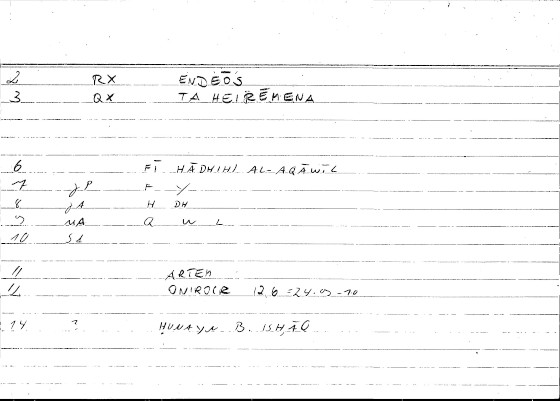 2 RX ENDEŌS
3 QX TA HEIRĒMENA
6 FĪ HĀDHIHI AL-AQĀWĪL
7 JP F Y
8 JA H DH
9 NA Q W L
10 SA
11 ARTEM
12 ONIROCR 12,6 =
14 ? ḤUNAYN B. ISḤĀQ